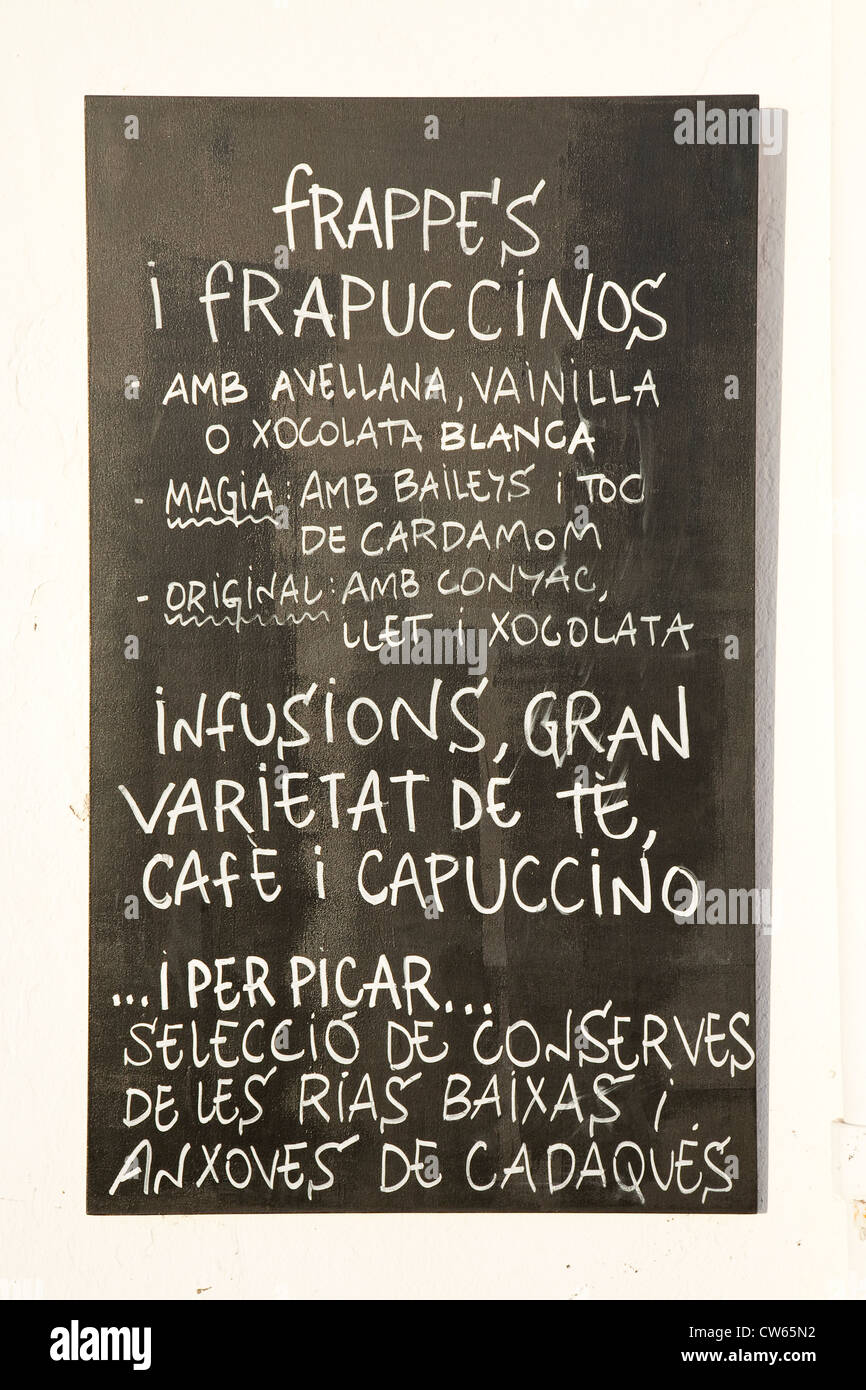 fRAPPE'S
i fRAPUCCiNOS
- AMB AVELLANA, VAiNiLLA
O XOCOLATA BLANCA
- MAGiA: AMB BAiLEYS i TOC
DE CARDAMOM
- ORiGiNAL: AMB CONYAC,
LLET i XOCOLATA
iNfUSiONS, GRAN
VARiETAT DE TÈ,
CAfÈ i CAPUCCiNO
...i PER PiCAR...
SELECCiÓ DE CONSERVES
DE LES RÍAS BAiXAS i
ANXOVES DE CADAQUÉS
alamy
Image ID: CW65N2
www.alamy.com